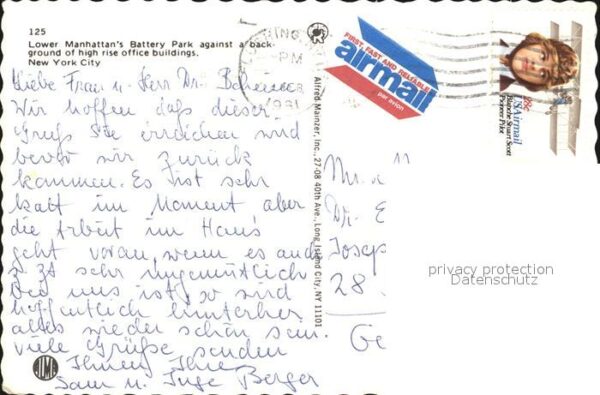 125
Lower Manhattan's Battery Park against a back-
ground of high rise office buildings.
New York City
Liebe Frau u. Herr Dr.
Wir hoffen daß dieser
Gruß Sie erreichen wird
bevor wir zurück
kommen. Es ist sehr
kalt im Moment aber
die Arbeit im Haus
geht voran, wenn es auch
sehr ungemütlich
bei uns ist, so wird
hoffentlich hinterher
alles wieder schön sein.
viele Grüße senden
Ihnen Ihre
Sam u. Inge Berger
Alfred Mainzer, Inc., 27-08 40th Ave., Long Island City, NY 11101
PM
1981
FIRST, FAST AND RELIABLE
airmail
par avion
28c
USAirmail
Blanche Stuart Scott
Pioneer Pilot
Dr.
Josep
28
Ge
privacy protection
Datenschutz